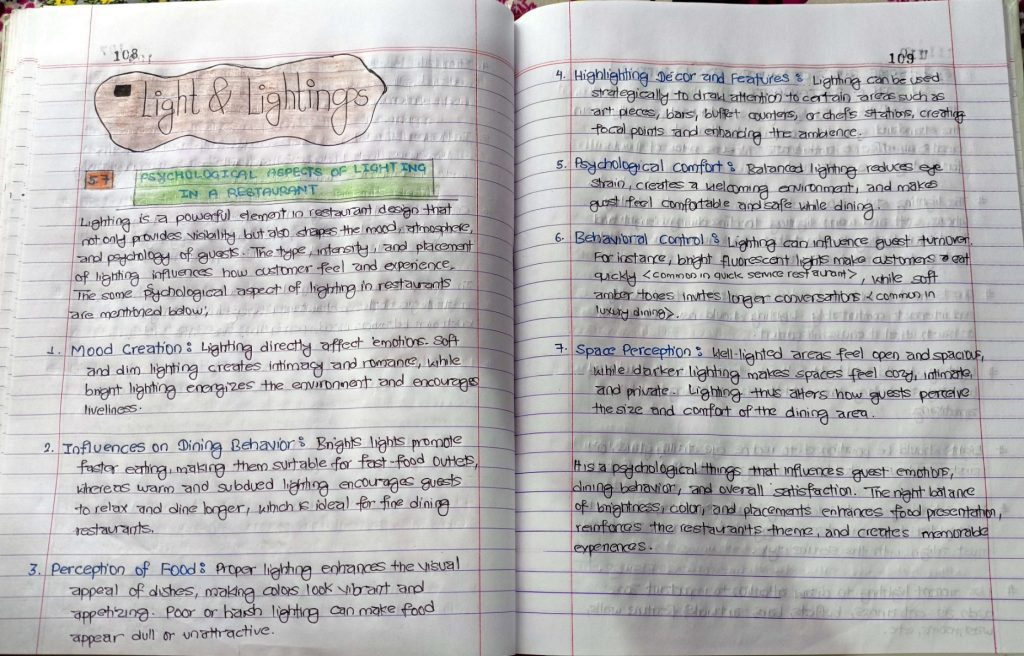 108
Light & Lightings
57
PSYCHOLOGICAL ASPECTS OF LIGHTING
IN A RESTAURANT
Lighting is a powerful element in restaurant design that
not only provides visibility but also shapes the mood, atmosphere,
and psychology of guests. The type, intensity, and placement
of lighting influences how customer feel and experience.
The some psychological aspect of lighting in restaurants
are mentioned below;
1. Mood Creation: Lighting directly affect emotions. Soft
and dim lighting creates intimacy and romance, while
bright lighting energizes the environment and encourages
liveliness.
2. Influences on Dining Behavior: Brights lights promote
faster eating, making them suitable for fast-food outlets,
whereas warm and subdued lighting encourages guests
to relax and dine longer, which is ideal for fine dining
restaurants.
3. Perception of Food: Proper lighting enhances the visual
appeal of dishes, making colors look vibrant and
appetizing. Poor or harsh lighting can make food
appear dull or unattractive.
109
4. Highlighting Décor and Features: Lighting can be used
strategically to draw attention to certain areas such as
art pieces, bars, buffet counters, or chef's stations, creating
focal points and enhancing the ambience.
5. Psychological Comfort: Balanced lighting reduces eye
strain, creates a welcoming environment, and makes
guest feel comfortable and safe while dining.
6. Behavioral Control: Lighting can influence guest turnover.
For instance, bright fluorescent lights make customers eat
quickly <common in quick service restaurant>, while soft
amber tones invites longer conversations <common in
luxury dining>.
7. Space Perception: Well-lighted areas feel open and spacious,
while darker lighting makes spaces feel cozy, intimate,
and private. Lighting thus alters how guests perceive
the size and comfort of the dining area.
It is a psychological things that influences guest emotions,
dining behavior, and overall satisfaction. The right balance
of brightness, color, and placements enhances food presentation,
reinforces the restaurant's theme, and creates memorable
experiences.